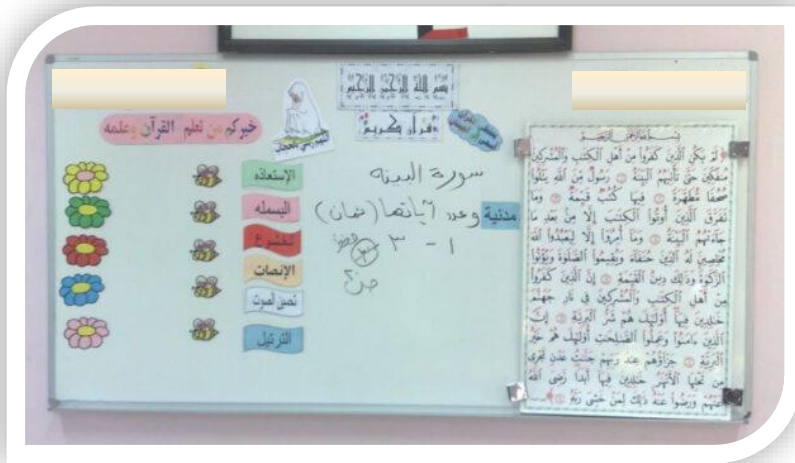 بسم الله الرحمن الرحيم
قرآن كريم
خيركم من تعلم القرآن وعلمه
سورة البينه
مدنية وعدد آياتها (ثمان)
١ - ٣
الإستعاذه
البسمله
الخشوع
الإنصات
الترتيل
بسم الله الرحمن الرحيم
لم يكن الذين كفروا من أهل الكتب والمشركين
منفكين حتى تأتيهم البينة ١ رسول من الله يتلوا
صحفا مطهرة ٢ فيها كتب قيمة ٣ وما
تفرق الذين أوتوا الكتب إلا من بعد ما
جاءتهم البينة ٤ وما أمروا إلا ليعبدوا الله
مخلصين له الدين حنفاء ويقيموا الصلوة ويؤتوا
الزكوة وذلك دين القيمة ٥ إن الذين كفروا
من أهل الكتب والمشركين في نار جهنم
خلدين فيها أولئك هم شر البرية ٦ إن
الذين ءامنوا وعملوا الصلحت أولئك هم خير
البرية ٧ جزاؤهم عند ربهم جنت عدن تجرى
من تحتها الأنهر خلدين فيها أبدا رضى الله
عنهم ورضوا عنه ذلك لمن خشى ربه ٨